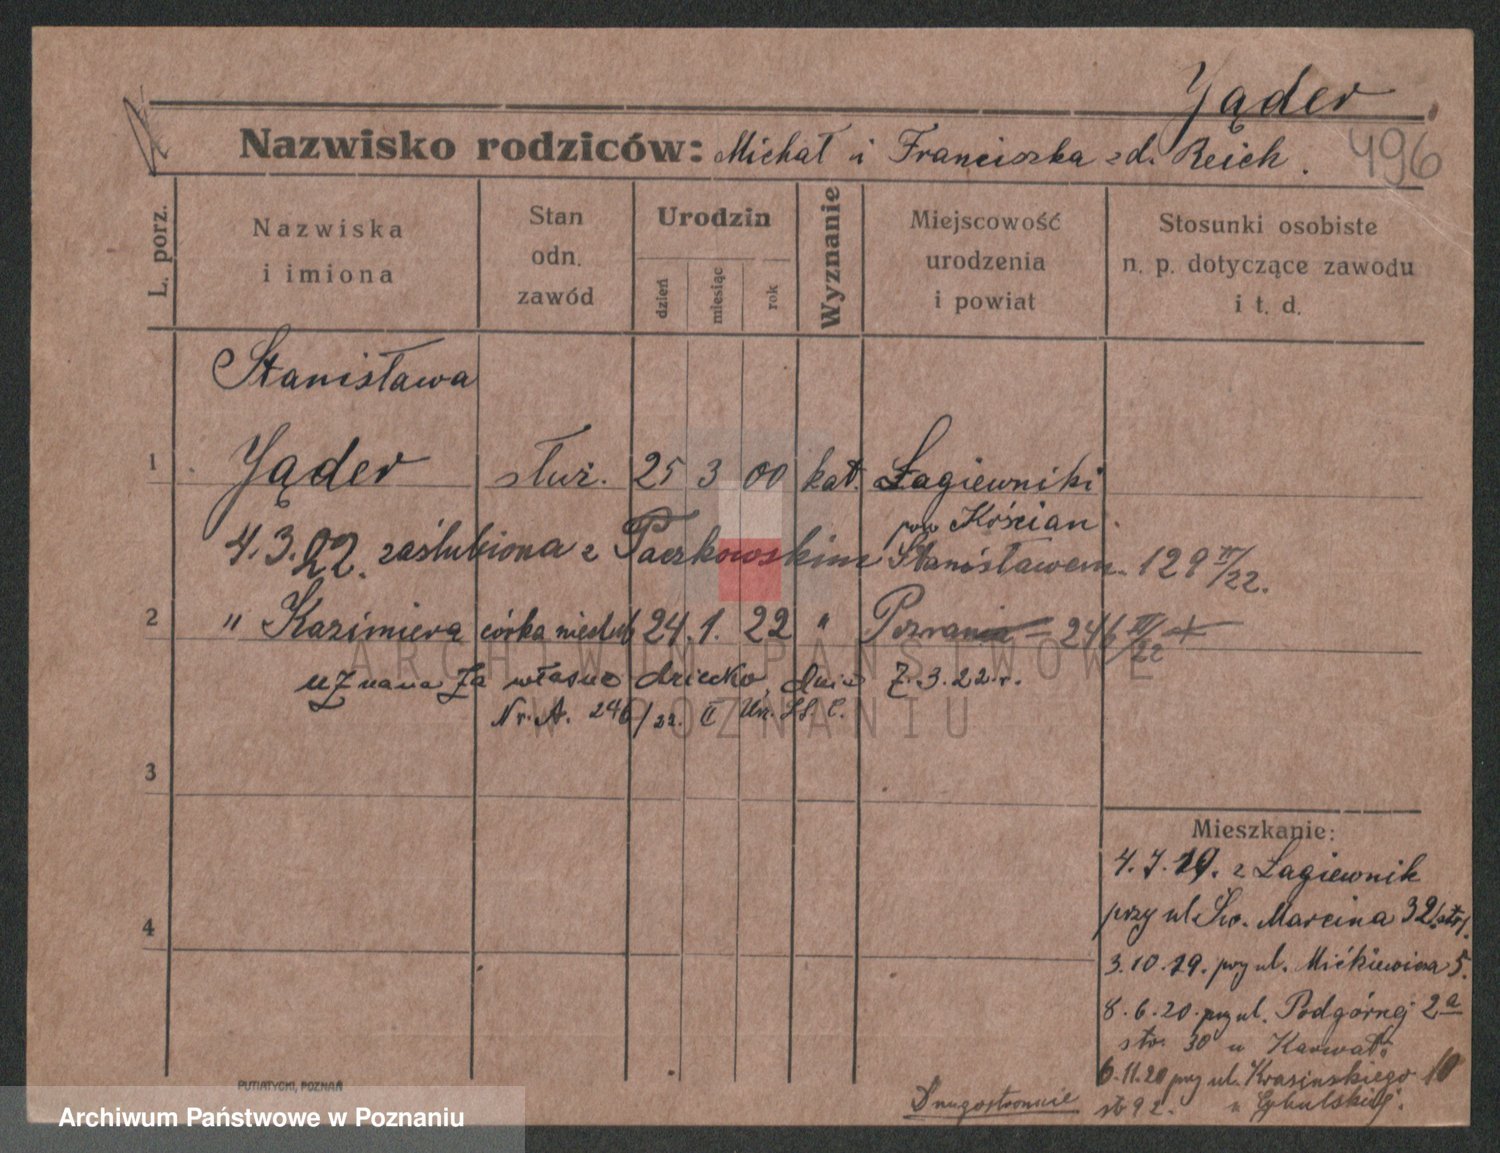 Jąder
Nazwisko rodziców: Michał i Franciszka zd. Reich.
496
L. porz.
Nazwiska i imiona
Stan odn. zawód
Urodzin
dzień
miesiąc
rok
Wyznanie
Miejscowość urodzenia i powiat
Stosunki osobiste n. p. dotyczące zawodu i t. d.
Stanisława
1 Jąder służ. 25 3 00 kat. Łagiewniki
pow. Kościan
4.3.22. zaślubiona z Taczkowskim Stanisławem. 129 III/22.
2 " Kazimiera córka nieślub 24. 1. 22 " Poznania 246 III/22
uznana za własne dziecko, dnia 7.3.22 r.
Nr. A. 246/22. II Urz. St. C.
3
4
Mieszkanie:
4.7.19. z Łagiewnik
przy ul. Św. Marcina 32 str.
3.10.19. przy ul. Mickiewicza 5.
8.6.20. przy ul. Podgórnej 2a
str. 30 u
6.11.20 przy ul. Krasińskiego 10
str 92. u
PUTIATYCKI, POZNAŃ
ARCHIWUM PAŃSTWOWE
W POZNANIU
Archiwum Państwowe w Poznaniu